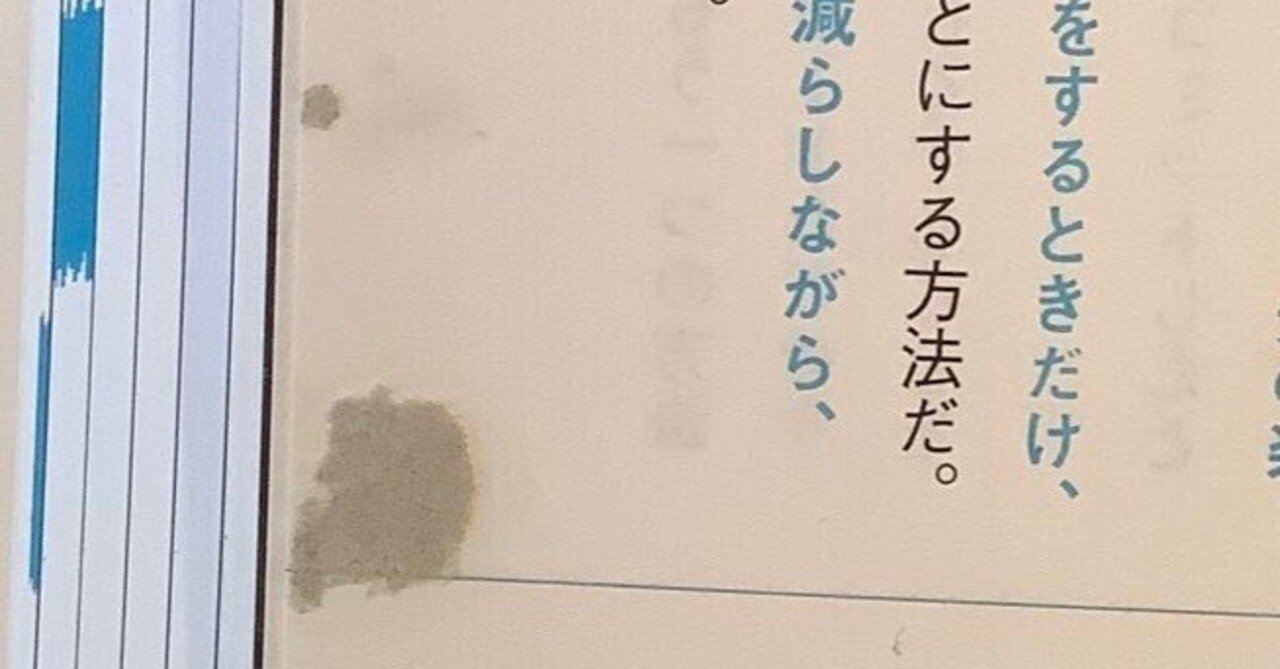 をするときだけ、
とにする方法だ。
減らしながら、
。